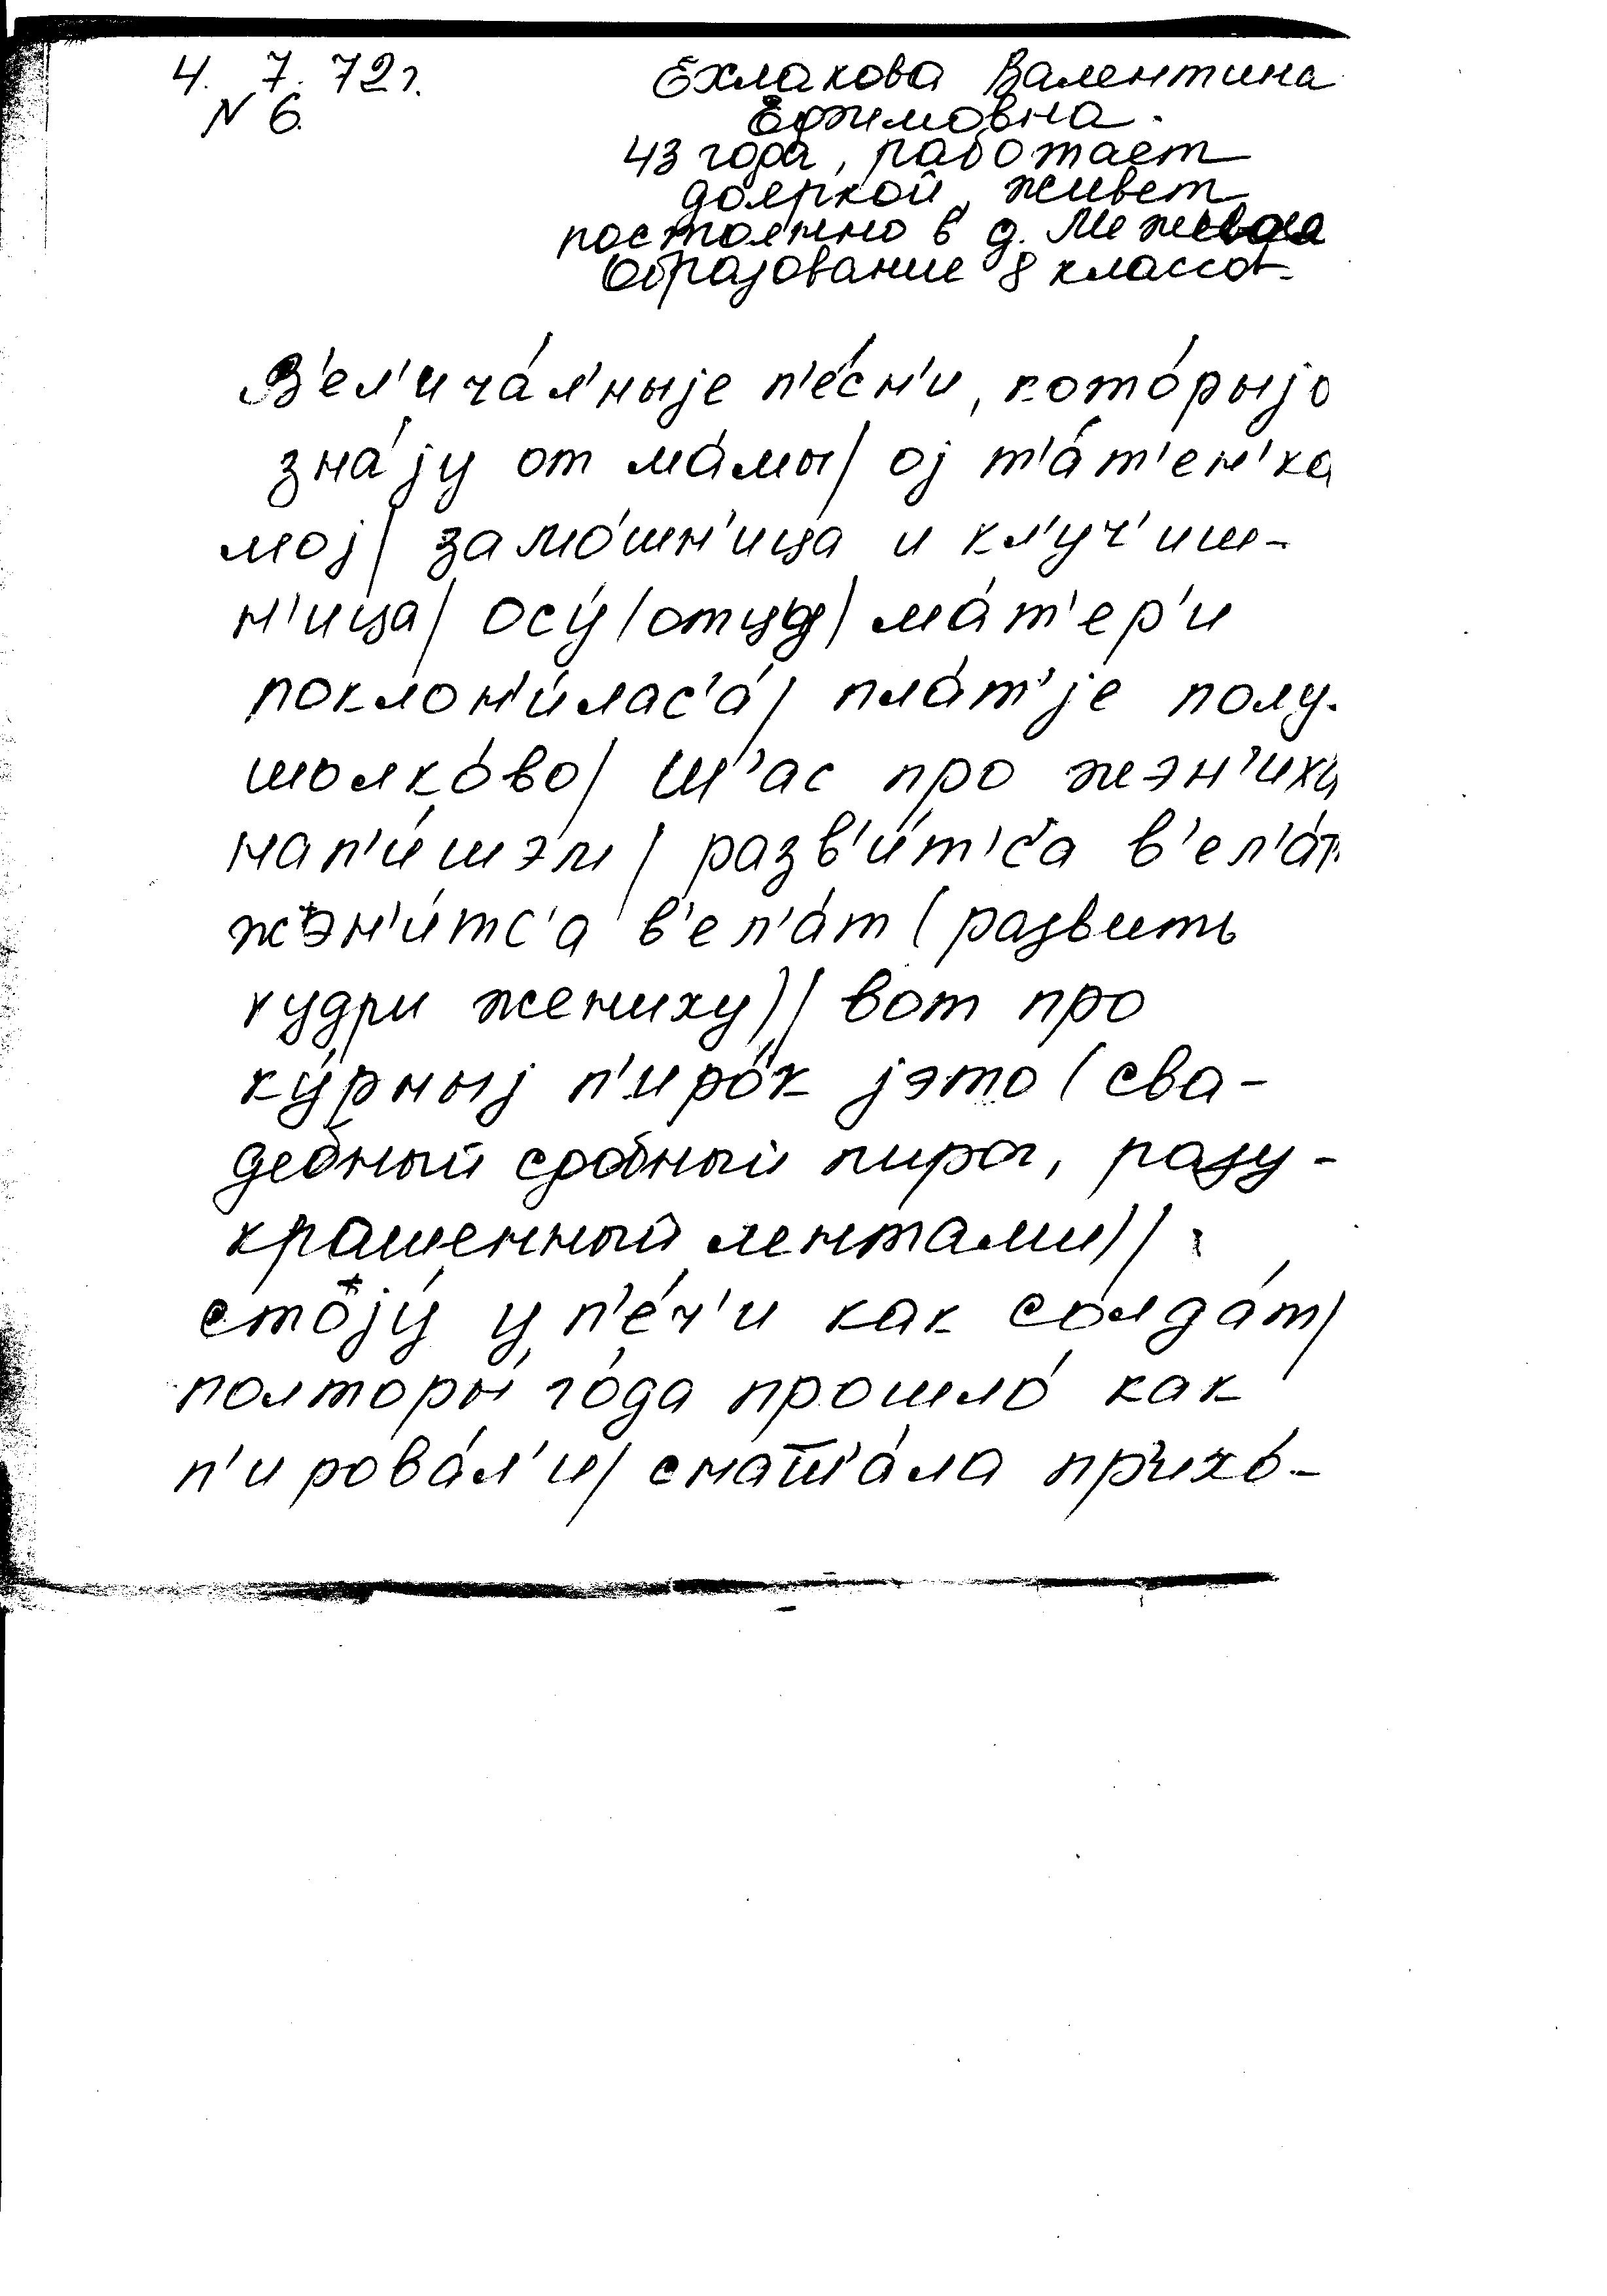 4. 7. 72г.
N 6.
Ехлакова Валентина
Ефимовна.
43 года, работает
дояркой, живет
постоянно в д. Межевая
Образование 8 классов.
В'ел'ича́л'ныjе п'е́сн'и, кото́рыjо
зна́jу от ма́мы/ оj т'а́т'ен'ка
моj/ замо́шн'ица и кл'уч'иш-
н'ица/ осу́ /отцу/ ма́т'ер'и
поклон'и́лас'а/ пла́т'jе полу-
шолко́во/ ш'ас про жэн'иха
нап'и́шэм/ разв'и́т'с'а в'ел'а́т
жэн'и́тс'а в'ел'а́т (развить
кудри жениху)// вот про
ку́рныj п'иро́к jэто (сва-
дебный сдобный пирог, разу-
крашенный лентами)//
стоjу́ у п'е́ч'и как солда́т/
полторы́ го́да прошло́ как
п'ирова́л'и/ снаш'а́ла пр'ихо́-